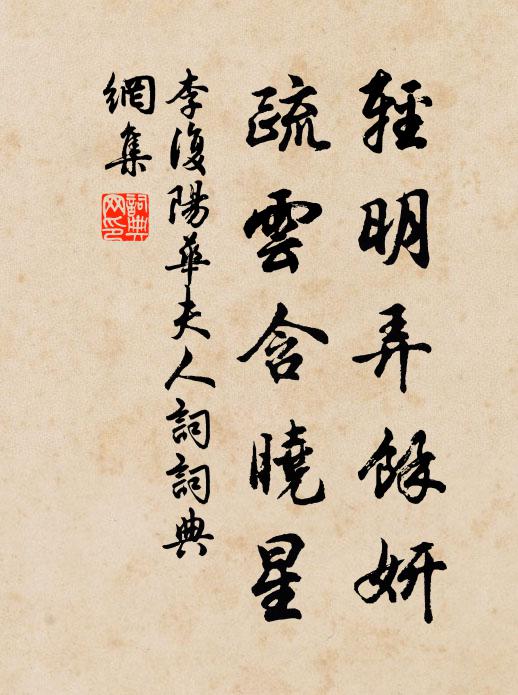 輕明弄餘妍
疏雲含曉星
李復陽華夫人詞詞典
網集
詞典
网印